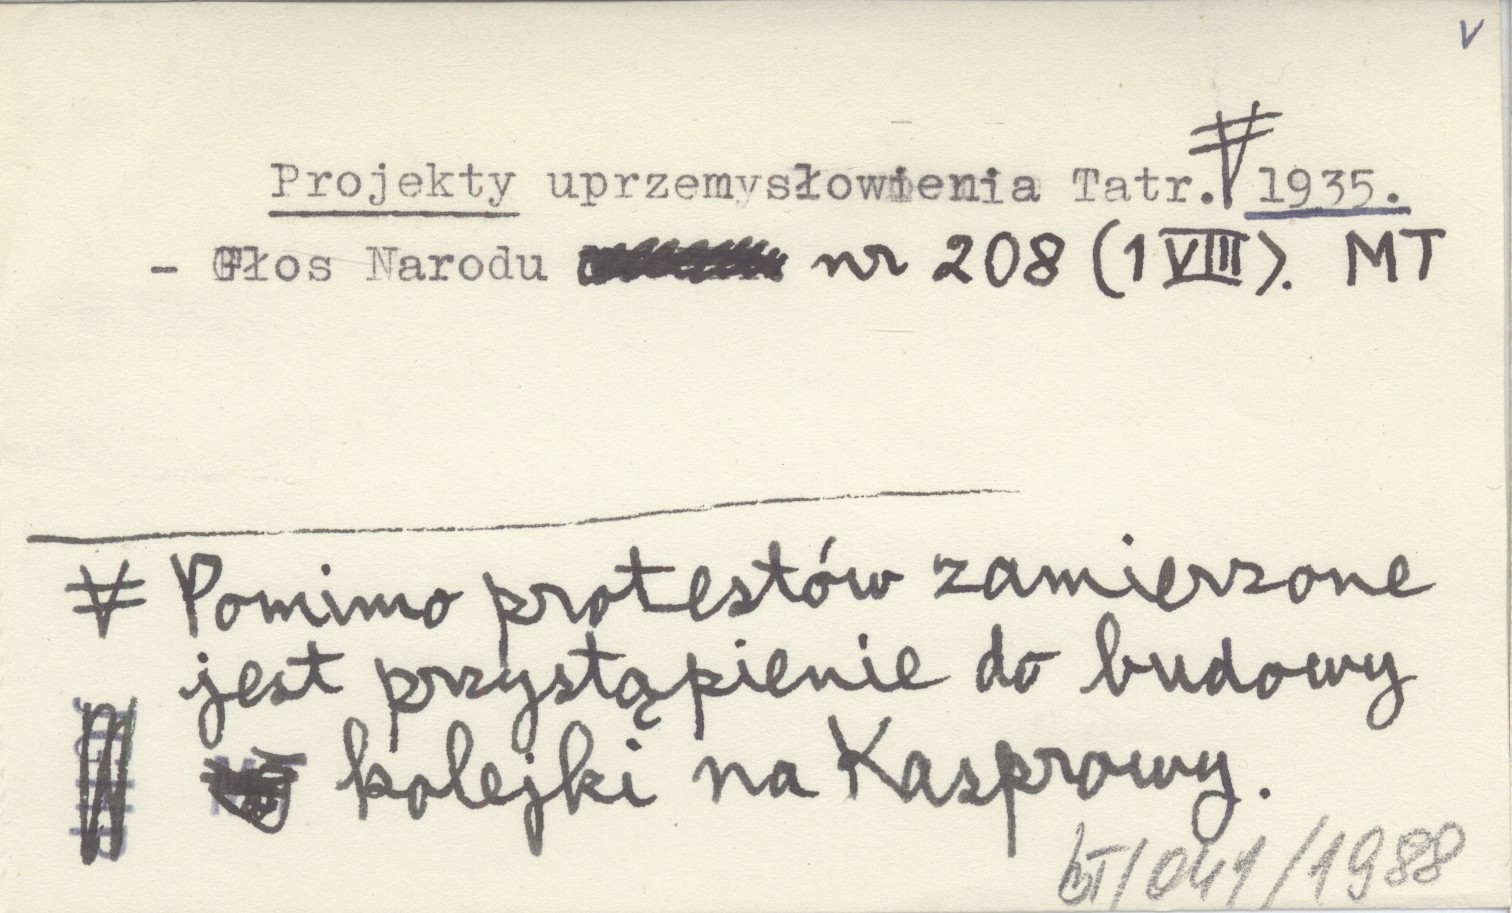 v
Projekty uprzemysłowienia Tatr. 1935.
- Głos Narodu nr 208 (1 VIII). MT
Pomimo protestów zamierzone
jest przystąpienie do budowy
kolejki na Kasprowy.
/041/1988